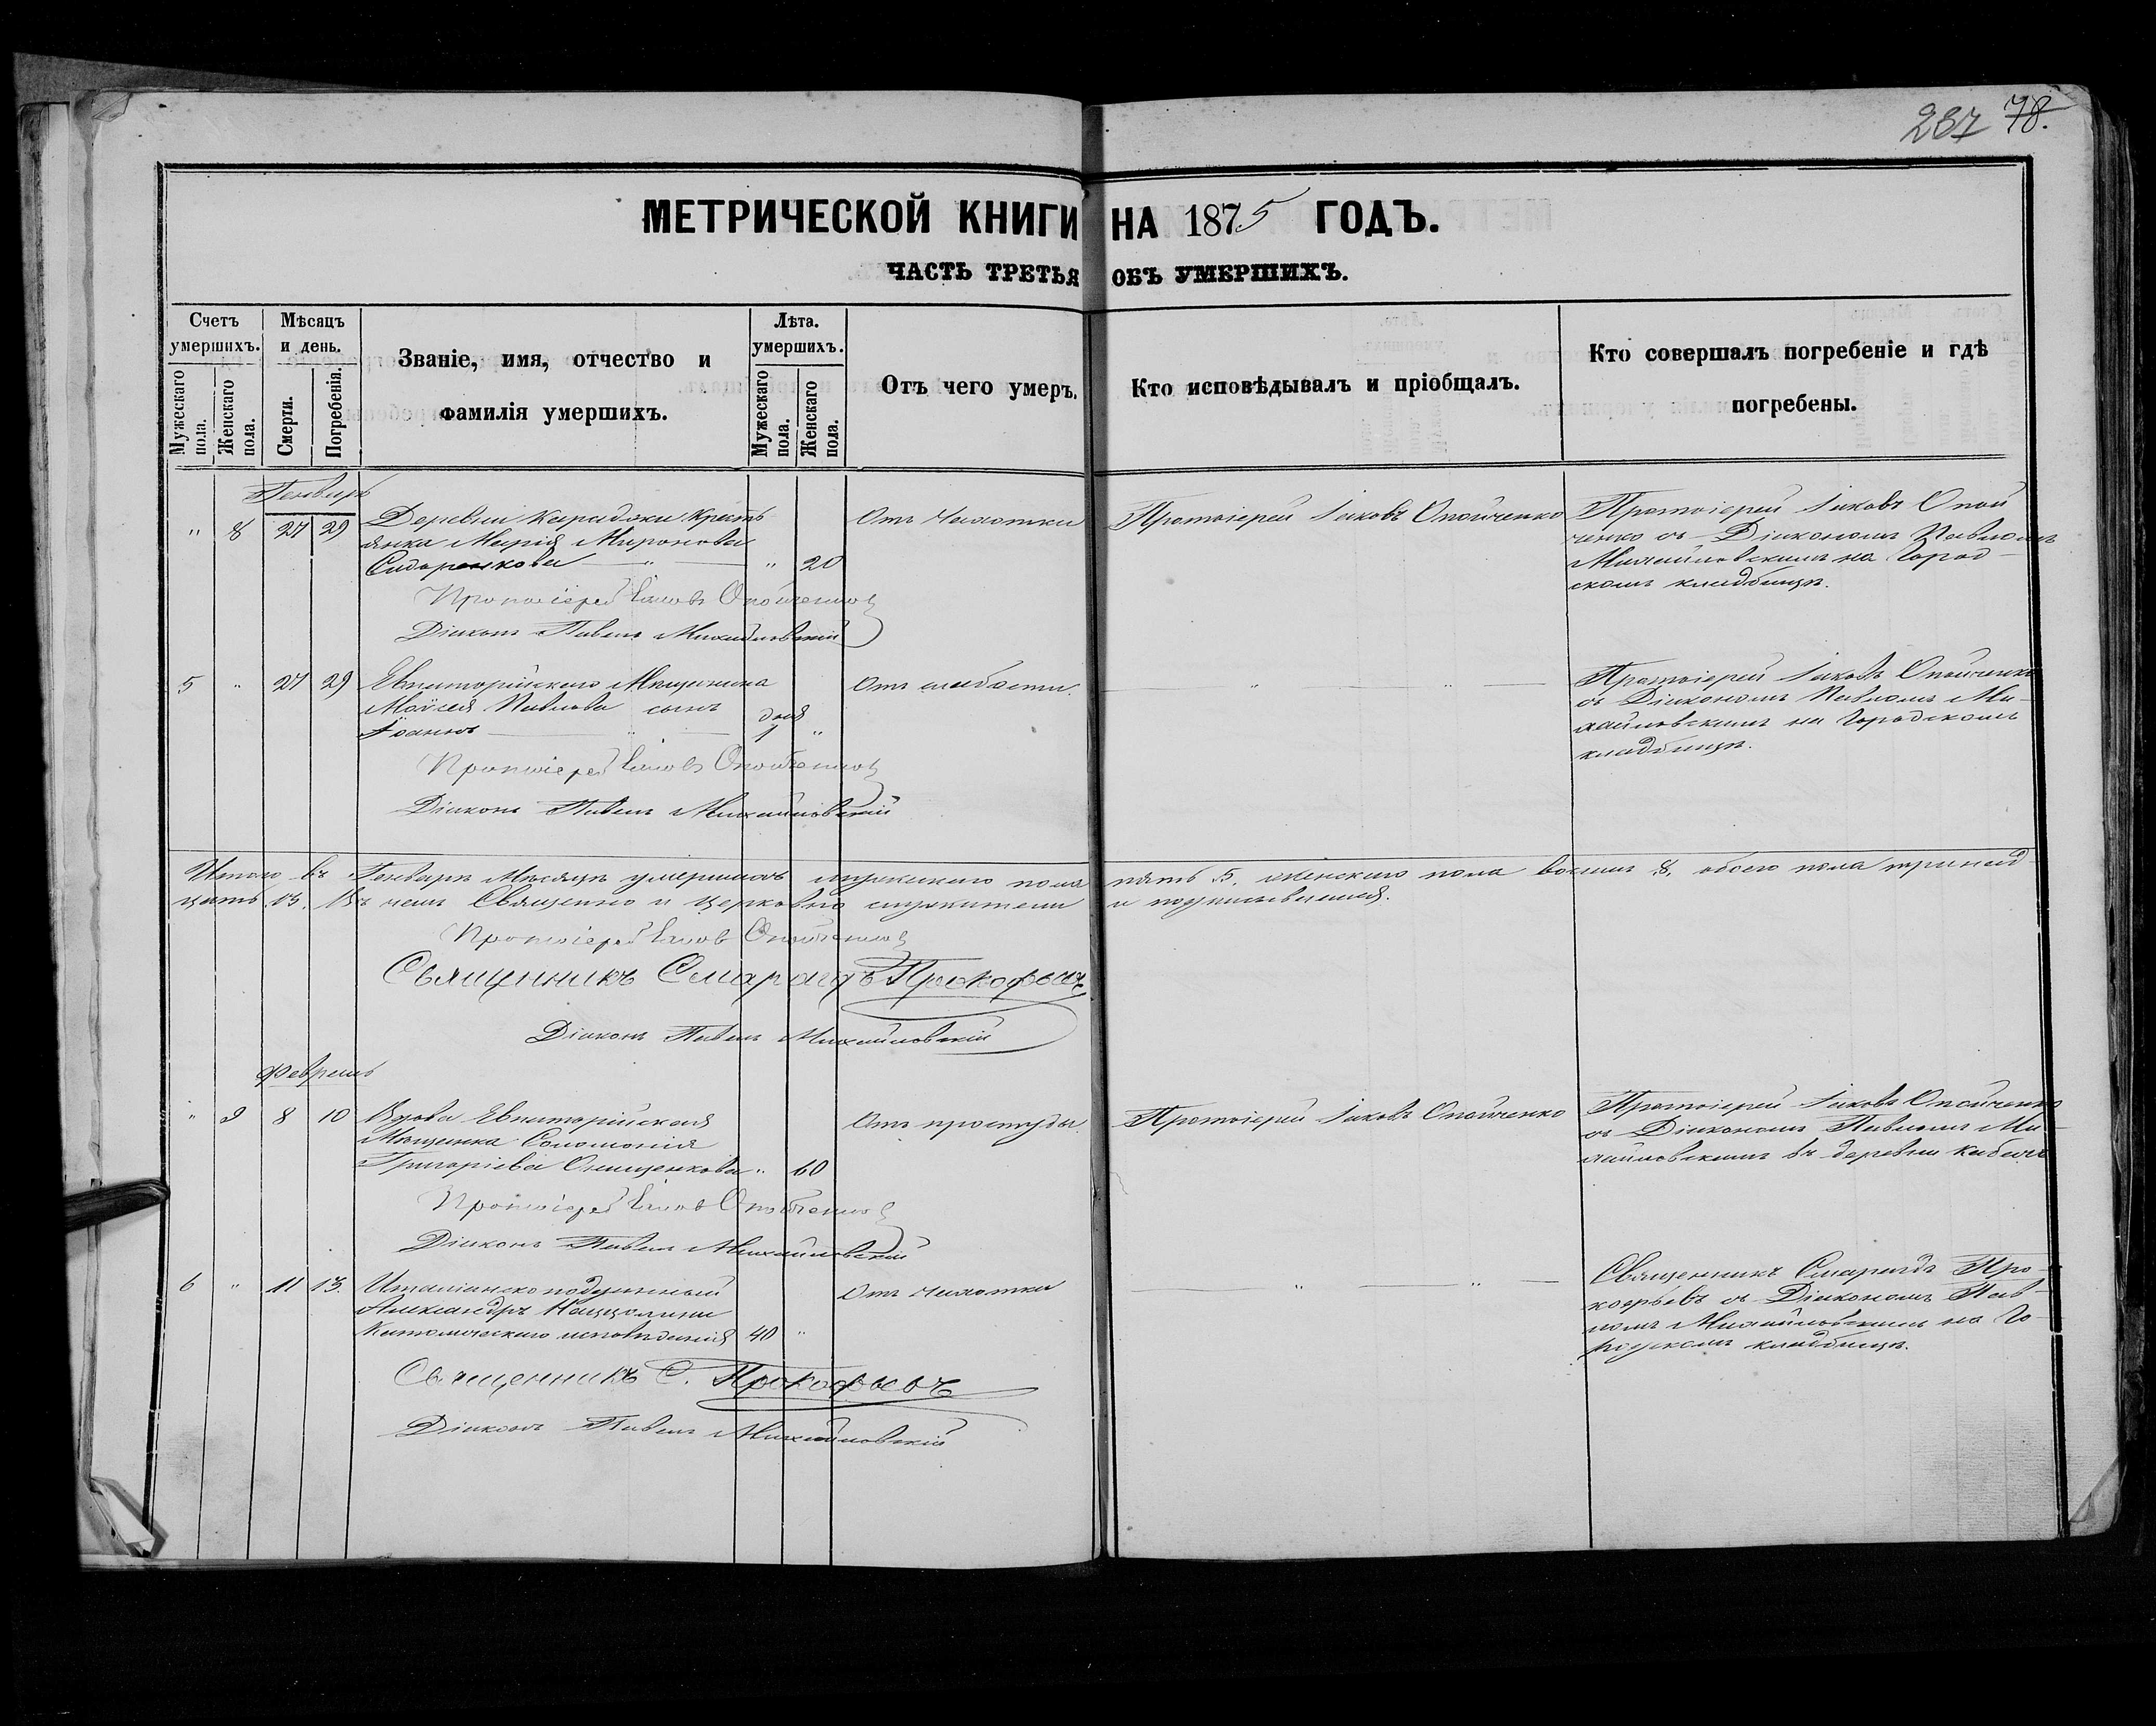 287 78.
МЕТРИЧЕСКОЙ КНИГИ НА 1875 ГОДЪ.
ЧАСТЬ ТРЕТЬЯ ОБЪ УМЕРШИХЪ.
Счетъ умершихъ.
Мужескаго пола.
Женскаго пола.
Мѣсяцъ и день.
Смерти.
Погребенія.
Званіе, имя, отчество и
фамилія умершихъ.
Лѣта. умершихъ.
Мужескаго пола.
Женскаго пола.
Отъ чего умеръ.
Кто исповѣдывалъ и пріобщалъ.
Кто совершалъ погребеніе и гдѣ
погребены.
Генварь
" 8 27 29 Деревни Караджи Кресть
янка Марія Миронова
Сидоренкова " " 20
Отъ Чахотки
Протоіерей Іаковъ Опойченко
Протоіерей Іаковъ Опой
ченко съ Діакономъ Павломъ
Михайловскимъ на Город-
скомъ кладбищѣ.
Протоіерей Іаковъ Опойченко
Діаконъ Павелъ Михайловскій
5 " 27 29 Евпаторійскаго Мѣщанина
Моисея Павлова сынъ
Іоаннъ " дня 1 "
Отъ слабости.
" "
Протоіерей Іаковъ Опойченко
съ Діакономъ Павломъ Ми-
хайловскимъ на Городскомъ
кладбищѣ.
Протоіерей Іаковъ Опойченко
Діаконъ Павелъ Михайловскій
Итого въ Генварѣ Мѣсяцѣ умершихъ мужескаго пола пять 5, женскаго пола восемь 8, обоего пола тринад
цать 13. Въ чемъ Священно и церковно служители и подписываемся.
Протоіерей Іаковъ Опойченко
Священникъ Смарагдъ Прокофьевъ
Діаконъ Павелъ Михайловскій
Февраль
" 9 8 10 Вдова Евпаторійская
Мѣщанка Соломонія
Григоріева Онищенкова " 60
Отъ простуды.
Протоіерей Іаковъ Опойченко
Протоіерей Іаковъ Опойченко
съ Діакономъ Павломъ Ми-
хайловскимъ въ деревни
Протоіерей Іаковъ Опойченко
Діаконъ Павелъ Михайловскій
6 " 11 13. Италіанскоподданный
Александръ
Католическаго исповѣданія 40 "
Отъ Чахотки
" "
Священникъ Смарагдъ Про-
кофьевъ съ Діакономъ Пав-
ломъ Михайловскимъ на Го-
родскомъ кладбищѣ.
Священникъ С. Прокофьевъ
Діаконъ Павелъ Михайловскій